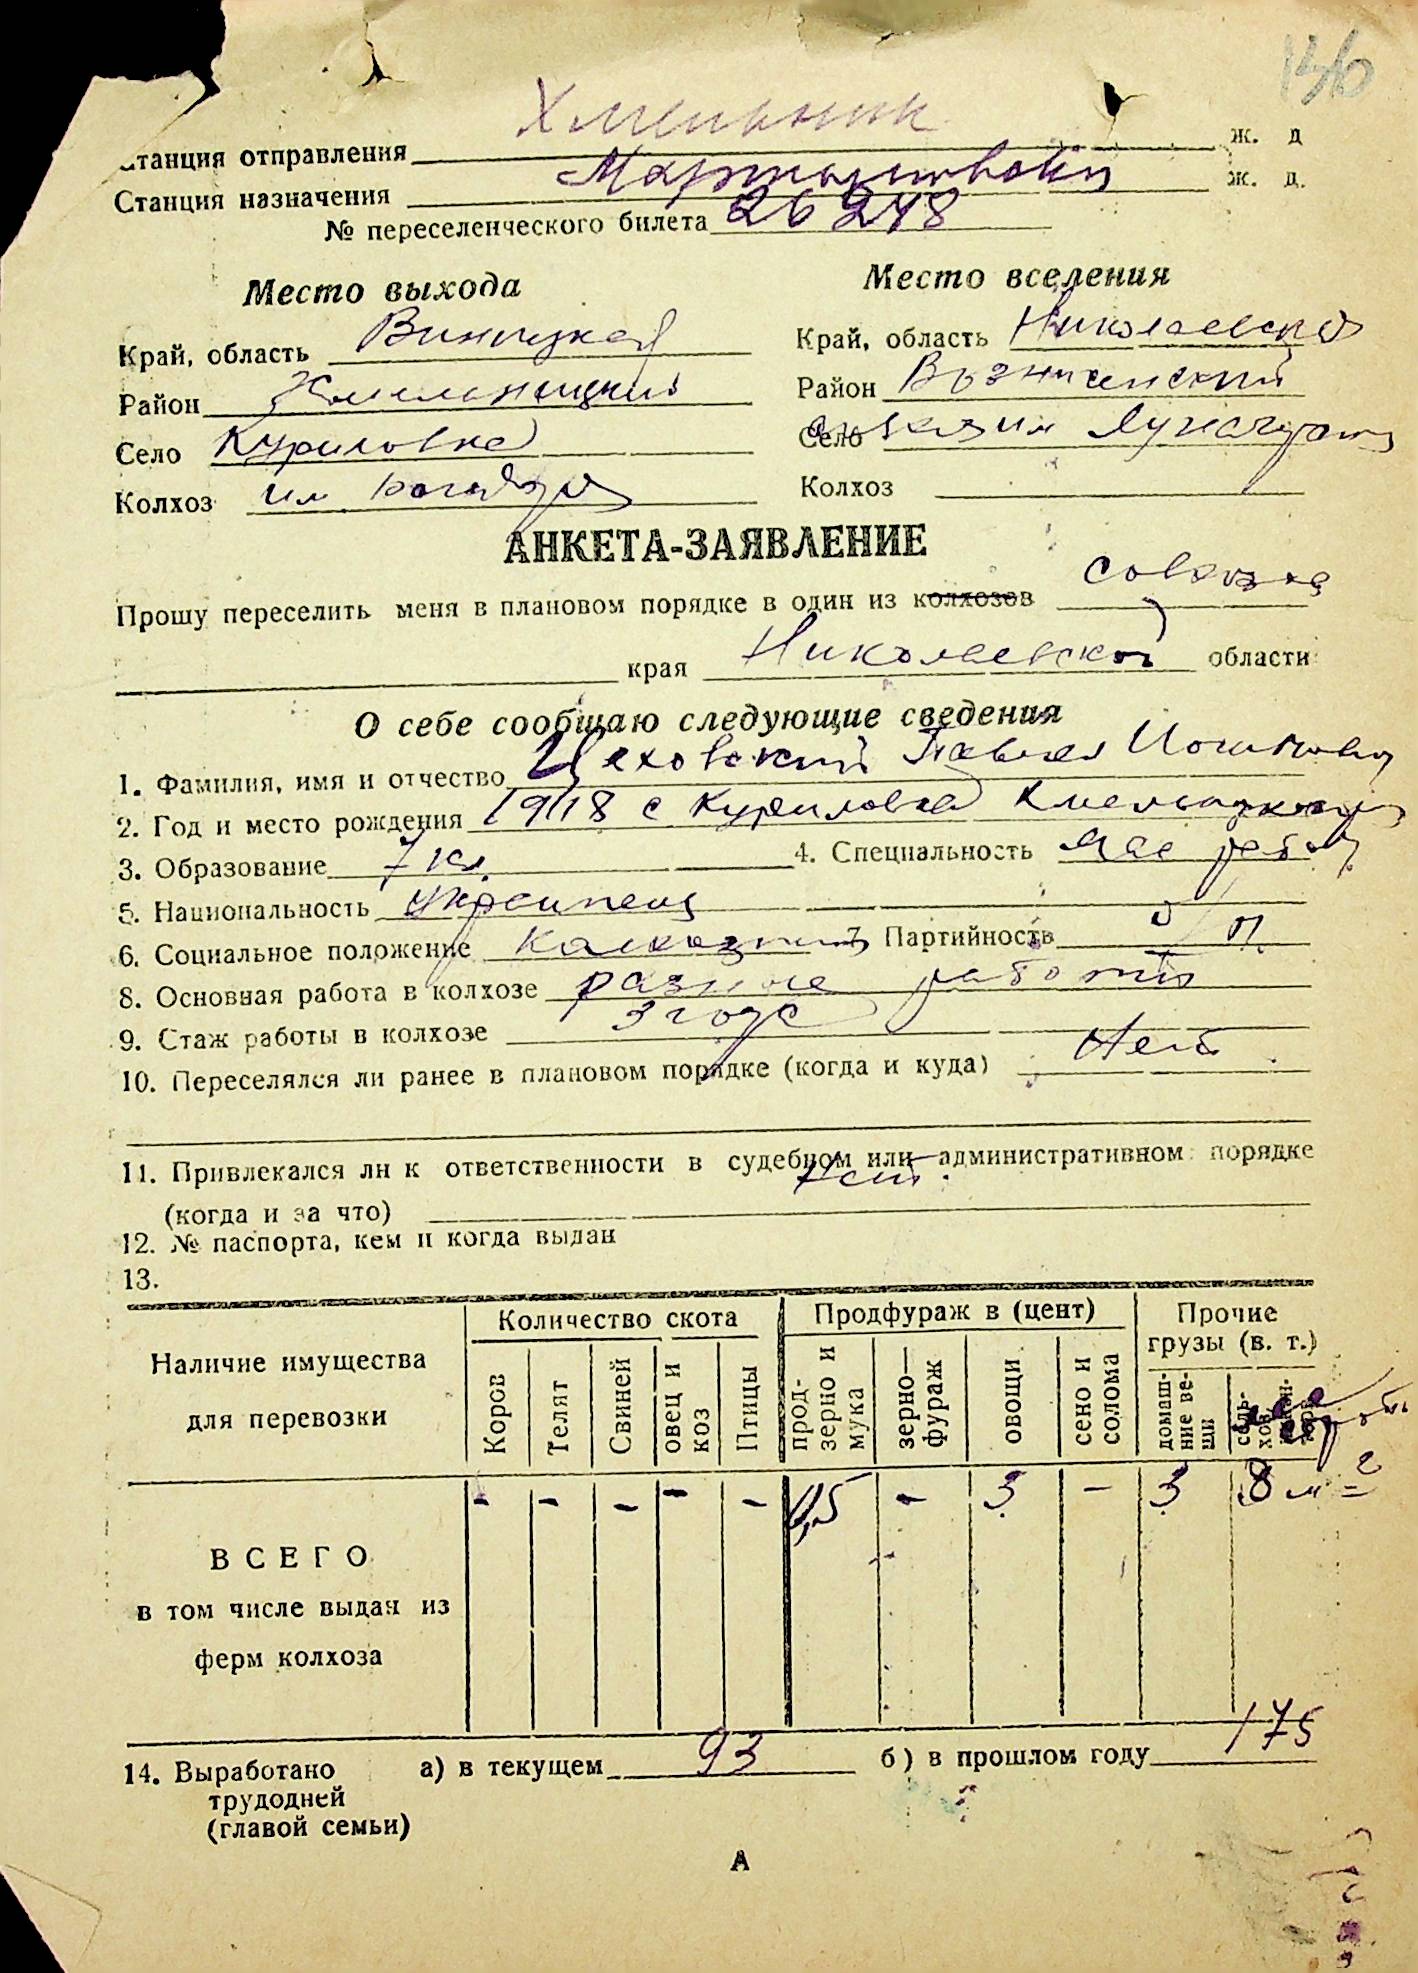 136
Хмельник
Станция отправления ж. д
Мартыновкий
Станция назначения ж. д.
№ переселенческого билета 26248
Место выхода Место вселения
Край, область Виницкая Край, область Николаевская
Район Хмельницкий Район Вознисенский
Село Куриловка Село им
Колхоз им Колхоз
АНКЕТА-ЗАЯВЛЕНИЕ
Прошу переселить меня в плановом порядке в один из колхозов совхоза
края Николаевской области
О себе сообщаю следующие сведения
1. Фамилия, имя и отчество Цеховский Павел
2. Год и место рождения 1918 с Куриловка
3. Образование 7 кл. 4. Специальность
5. Национальность украинец
6. Социальное положение колхозник 7. Партийность б/п.
8. Основная работа в колхозе разные работы
9. Стаж работы в колхозе 3 года
10. Переселялся ли ранее в плановом порядке (когда и куда) Нет
11. Привлекался ли к ответственности в судебном или административном порядке
Нет.
(когда и за что)
12. № паспорта, кем и когда выдан
13.
Наличие имущества для перевозки
Количество скота Продфураж в (цент) Прочие грузы (в. т.)
Коров Телят Свиней овец и коз Птицы прод-зерно и мука зерно—фураж овощи сено и солома домаш-ние ве-щи
- - - - - 0,5 - 3 - 3 8 м2
ВСЕГО
в том числе выдан из
ферм колхоза
14. Выработано а) в текущем 93 б) в прошлом году 175
трудодней
(главой семьи)
А